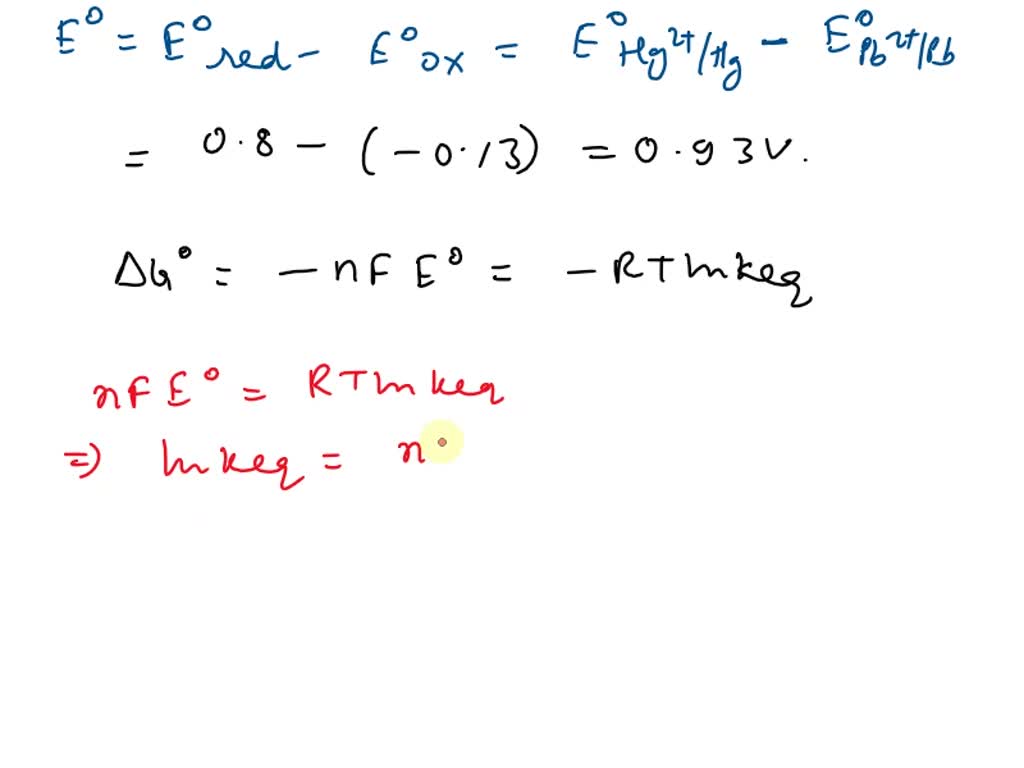 E° = E°red - E°ox = E°Hg²⁺/Hg - E°Pb²⁺/Pb
= 0.8 - (-0.13) = 0.93V.
ΔG° = -nFE° = -RTlnkeq
nFE° = RTlnkeq
=) lnkeq = n